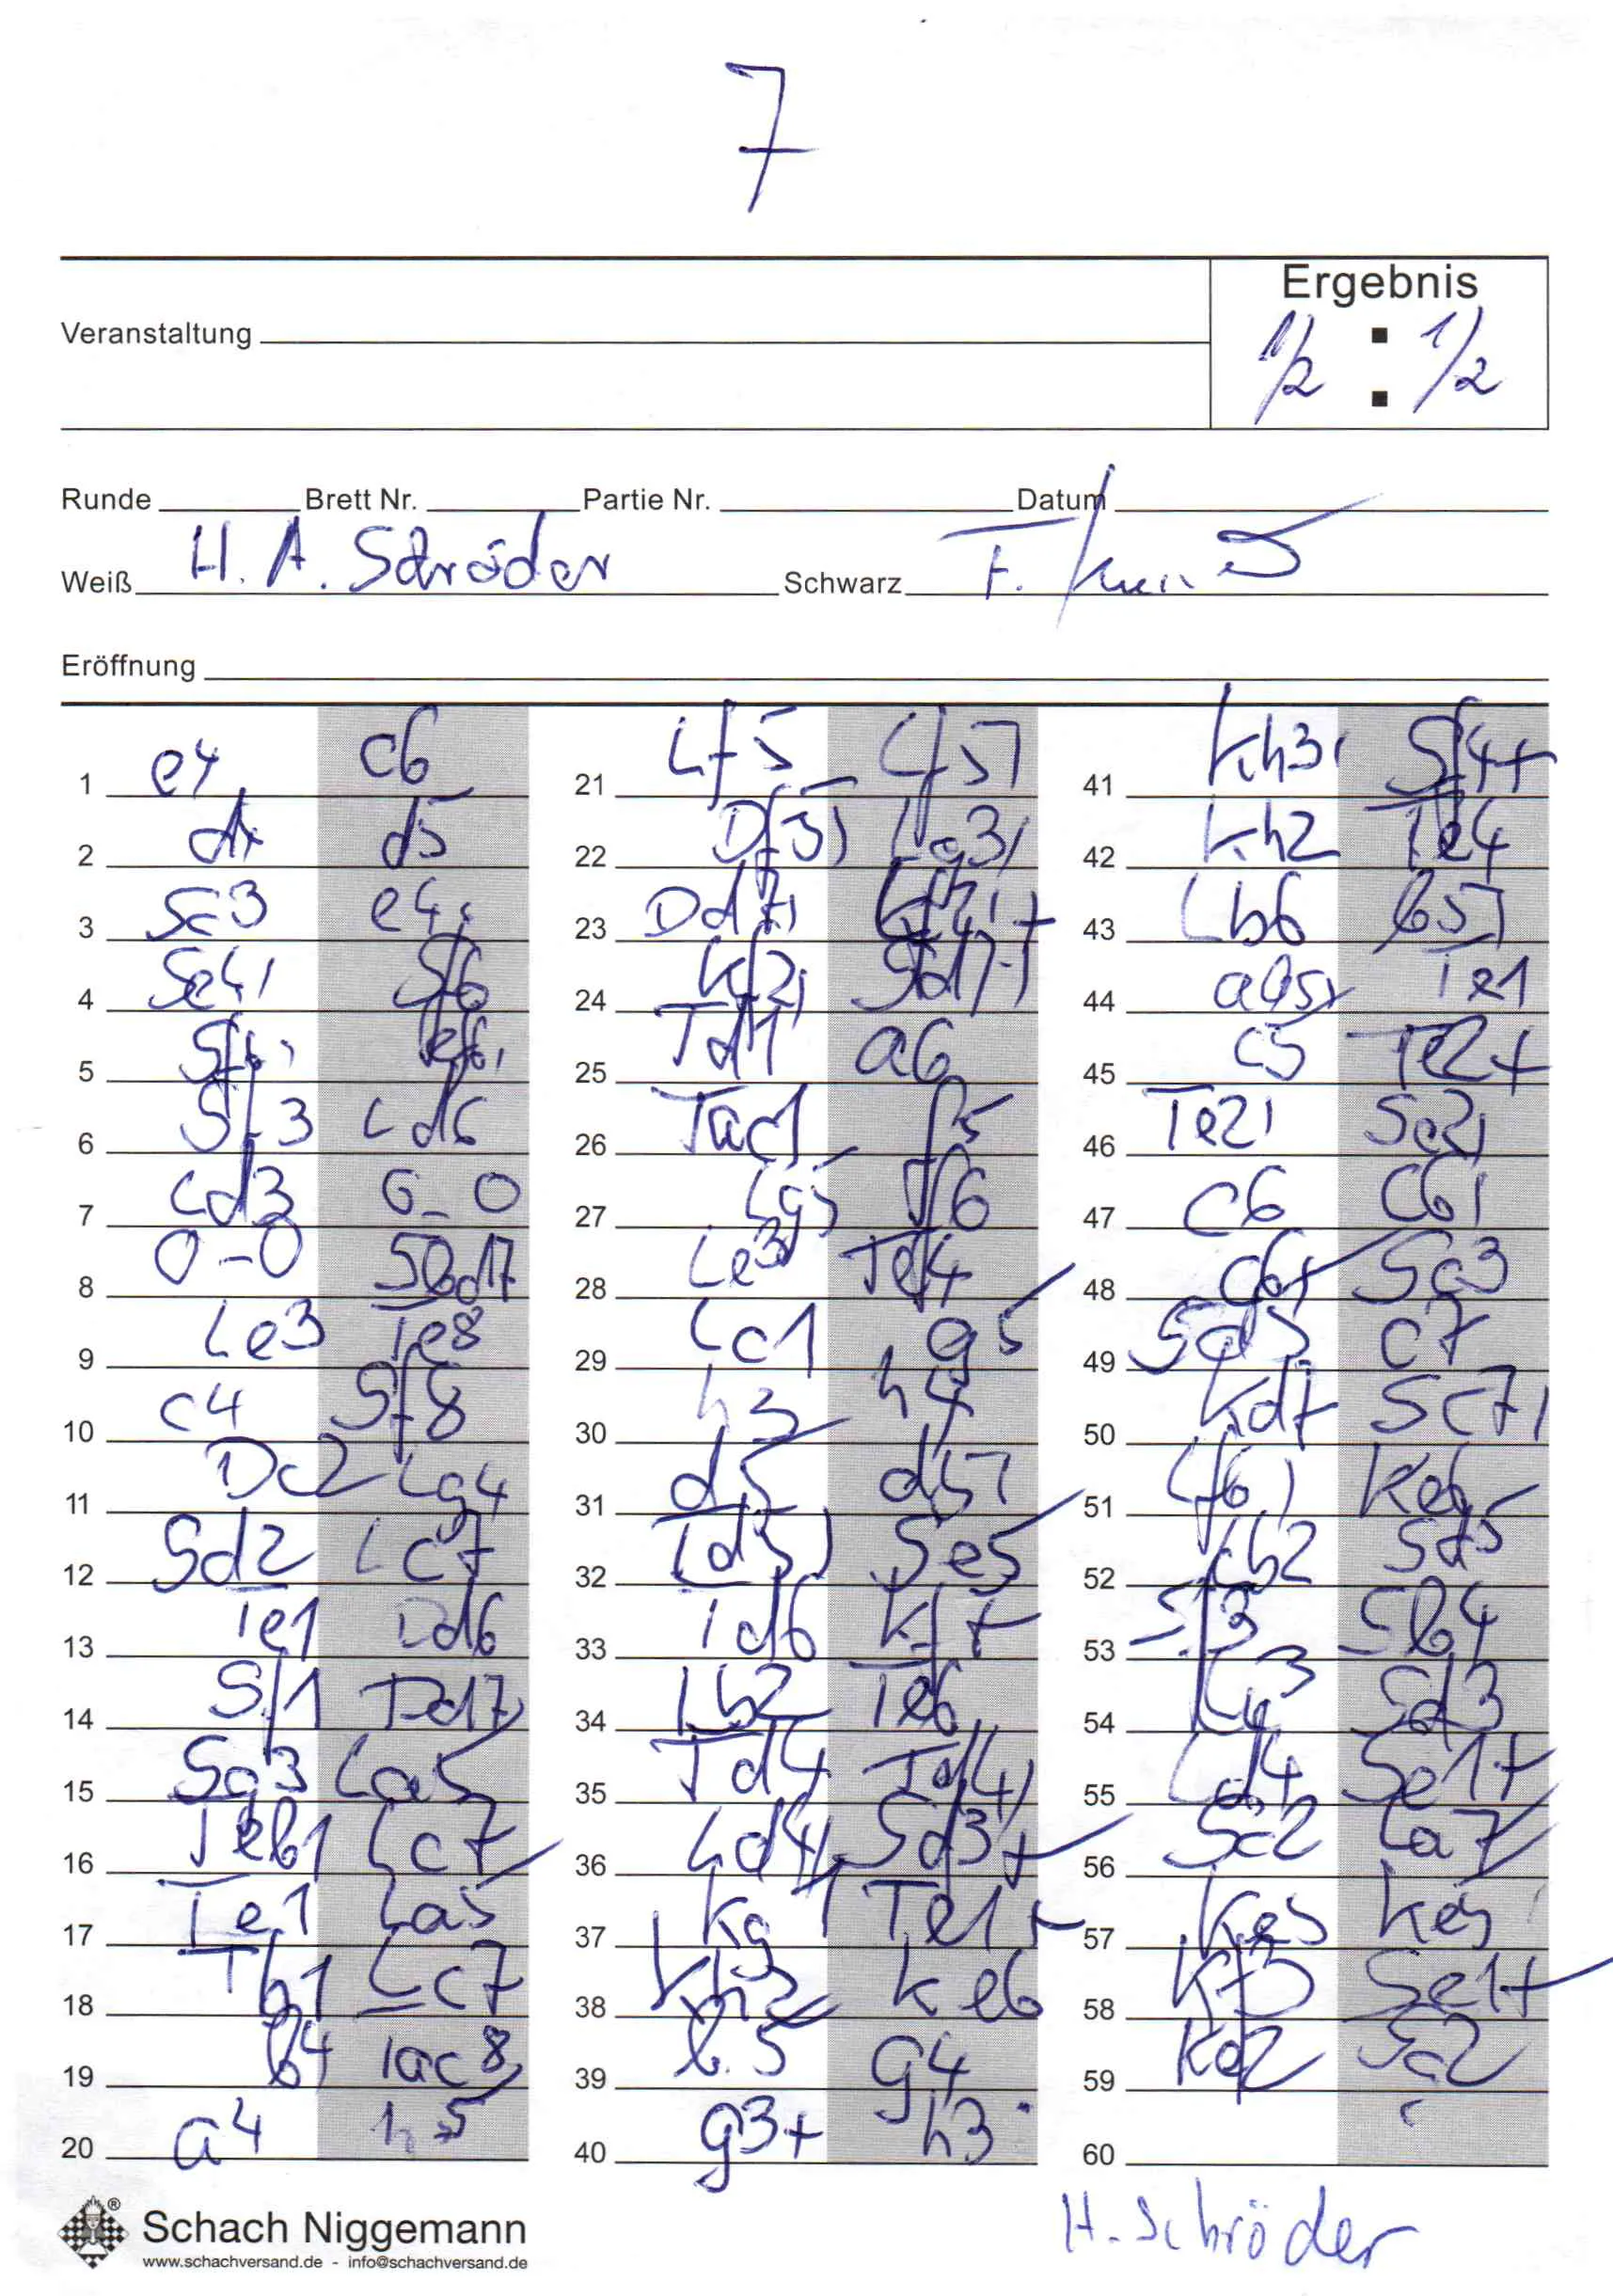 7
Ergebnis
1/2 : 1/2
Veranstaltung
Runde Brett Nr. Partie Nr. Datum
Weiß H. A. Schröder Schwarz F.
Eröffnung
1 e4 c6
2 d4 d5
3 Sc3 e4:
4 Se4: Sf6
5 Sf6: ef6:
6 Sf3 Ld6
7 Ld3 0-0
8 0-0 Sbd7
9 Le3 Te8
10 c4 Sf8
11 Dc2 Lg4
12 Sd2 Lc7
13 Te1 Dd6
14 Sf1 Td7
15 Sg3 La5
16 Teb1 Lc7
17 Te1 La5
18 Tb1 Lc7
19 b4 Tac8
20 a4 h5
21 Lf5 Lf5:
22 Df5: Lg3:
23 Dd7: Lf2:+
24 Kf2: Sd7:
25 Td1 a6
26 Tac1 f5
27 Lg5 Sf6
28 Le3 Te4
29 Lc1 g5
30 h3 h4
31 d5 d5:
32 Td5: Se5
33 Td6 Kf7
34 Lb2 Te6
35 Td4 Td4:
36 Ld4: Sd3+
37 Kg1 Te1+
38 Kh2 Ke6
39 b5 g4
40 g3+ h3
41 Kh3: Sf4+
42 Kh2 Te4
43 Lb6 b5:
44 ab5: Te1
45 c5 Te2+
46 Te2: Se2:
47 c6 c6:
48 c6+ Sc3
49 Sd5 c7
50 Kd7 Sc7:
51 Lf6: Ke6
52 Lb2 Sd5
53 Sf3 Sb4
54 Sd3
55 Ld4 Se1+
56 Sc2 La7
57 Ke3 Ke5
58 Kf3 Se1+
59 Ke2 Sc2
60
Schach Niggemann
www.schachversand.de - info@schachversand.de
H. Schröder